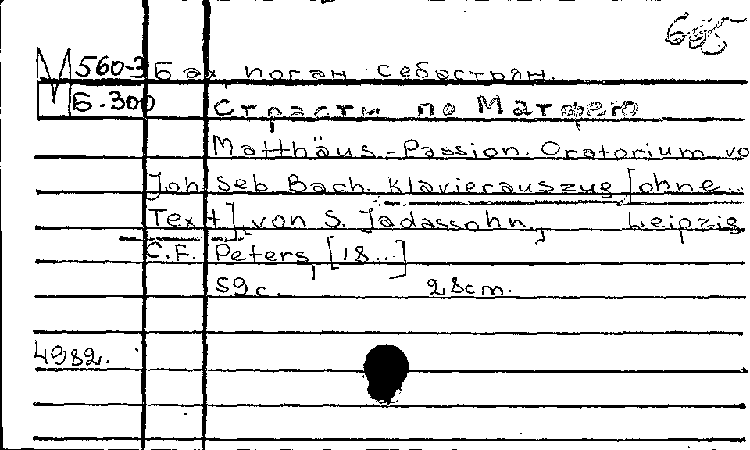 665
М 560-3 Бах, Иоган Себастьян.
Б-300 Страсти по Матфею
Matthäus-Passion. Oratorium vo
Joh. Seb. Bach. Klavierauszug [ohne
Text], von S. Jadassohn, Leipzig
C.F. Peters, [18...]
59 c. 28cm.
4982.